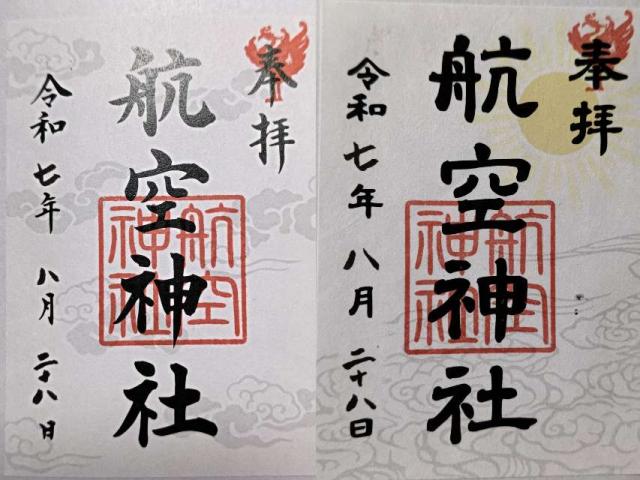 奉拝
航空神社
航空神社
令和七年八月二十八日
奉拝
航空神社
航空神社
令和七年八月二十八日